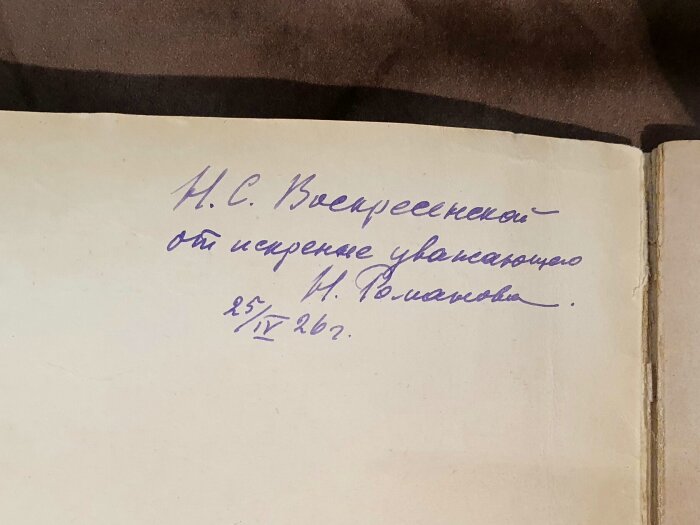 Н. С. Воскресенской
от искренне уважающего
Н. Романова.
25/IV 26 г.